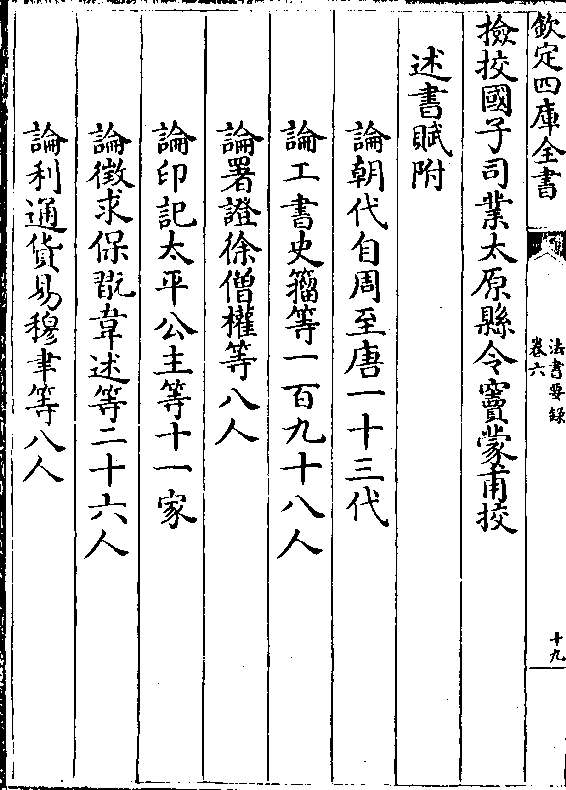 欽定四庫全書
法書要錄
卷六
十九
撿挍國子司業太原縣令竇蒙甫挍
述書賦附
論朝代自周至唐一十三代
論工書史籀等一百九十八人
論署證徐僧權等八人
論印記太平公主等十一家
論徵求保翫韋述等二十六人
論利通貨易穆聿等八人